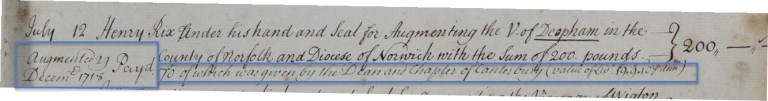 July 12 Henry Rix Under his hand and Seal for Augmenting the V. of Deopham in the
County of Norfolk and Diocese of Norwich with the Sum of 200 pounds — } 200,,—,,—
Augmented 29 Decem.r 1718 Payd
70 of which was given by the Dean and Chapter of Canterbury (value of Liv.